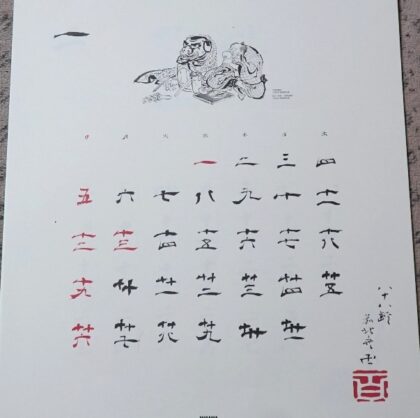 一
日 月 火 水 木 金 土
一 二 三 四
五 六 七 八 九 十 十一
十二 十三 十四 十五 十六 十七 十八
十九 廿 廿一 廿二 廿三 廿四 廿五
廿六 廿七 廿八 廿九 卅 卅一
八十八齢